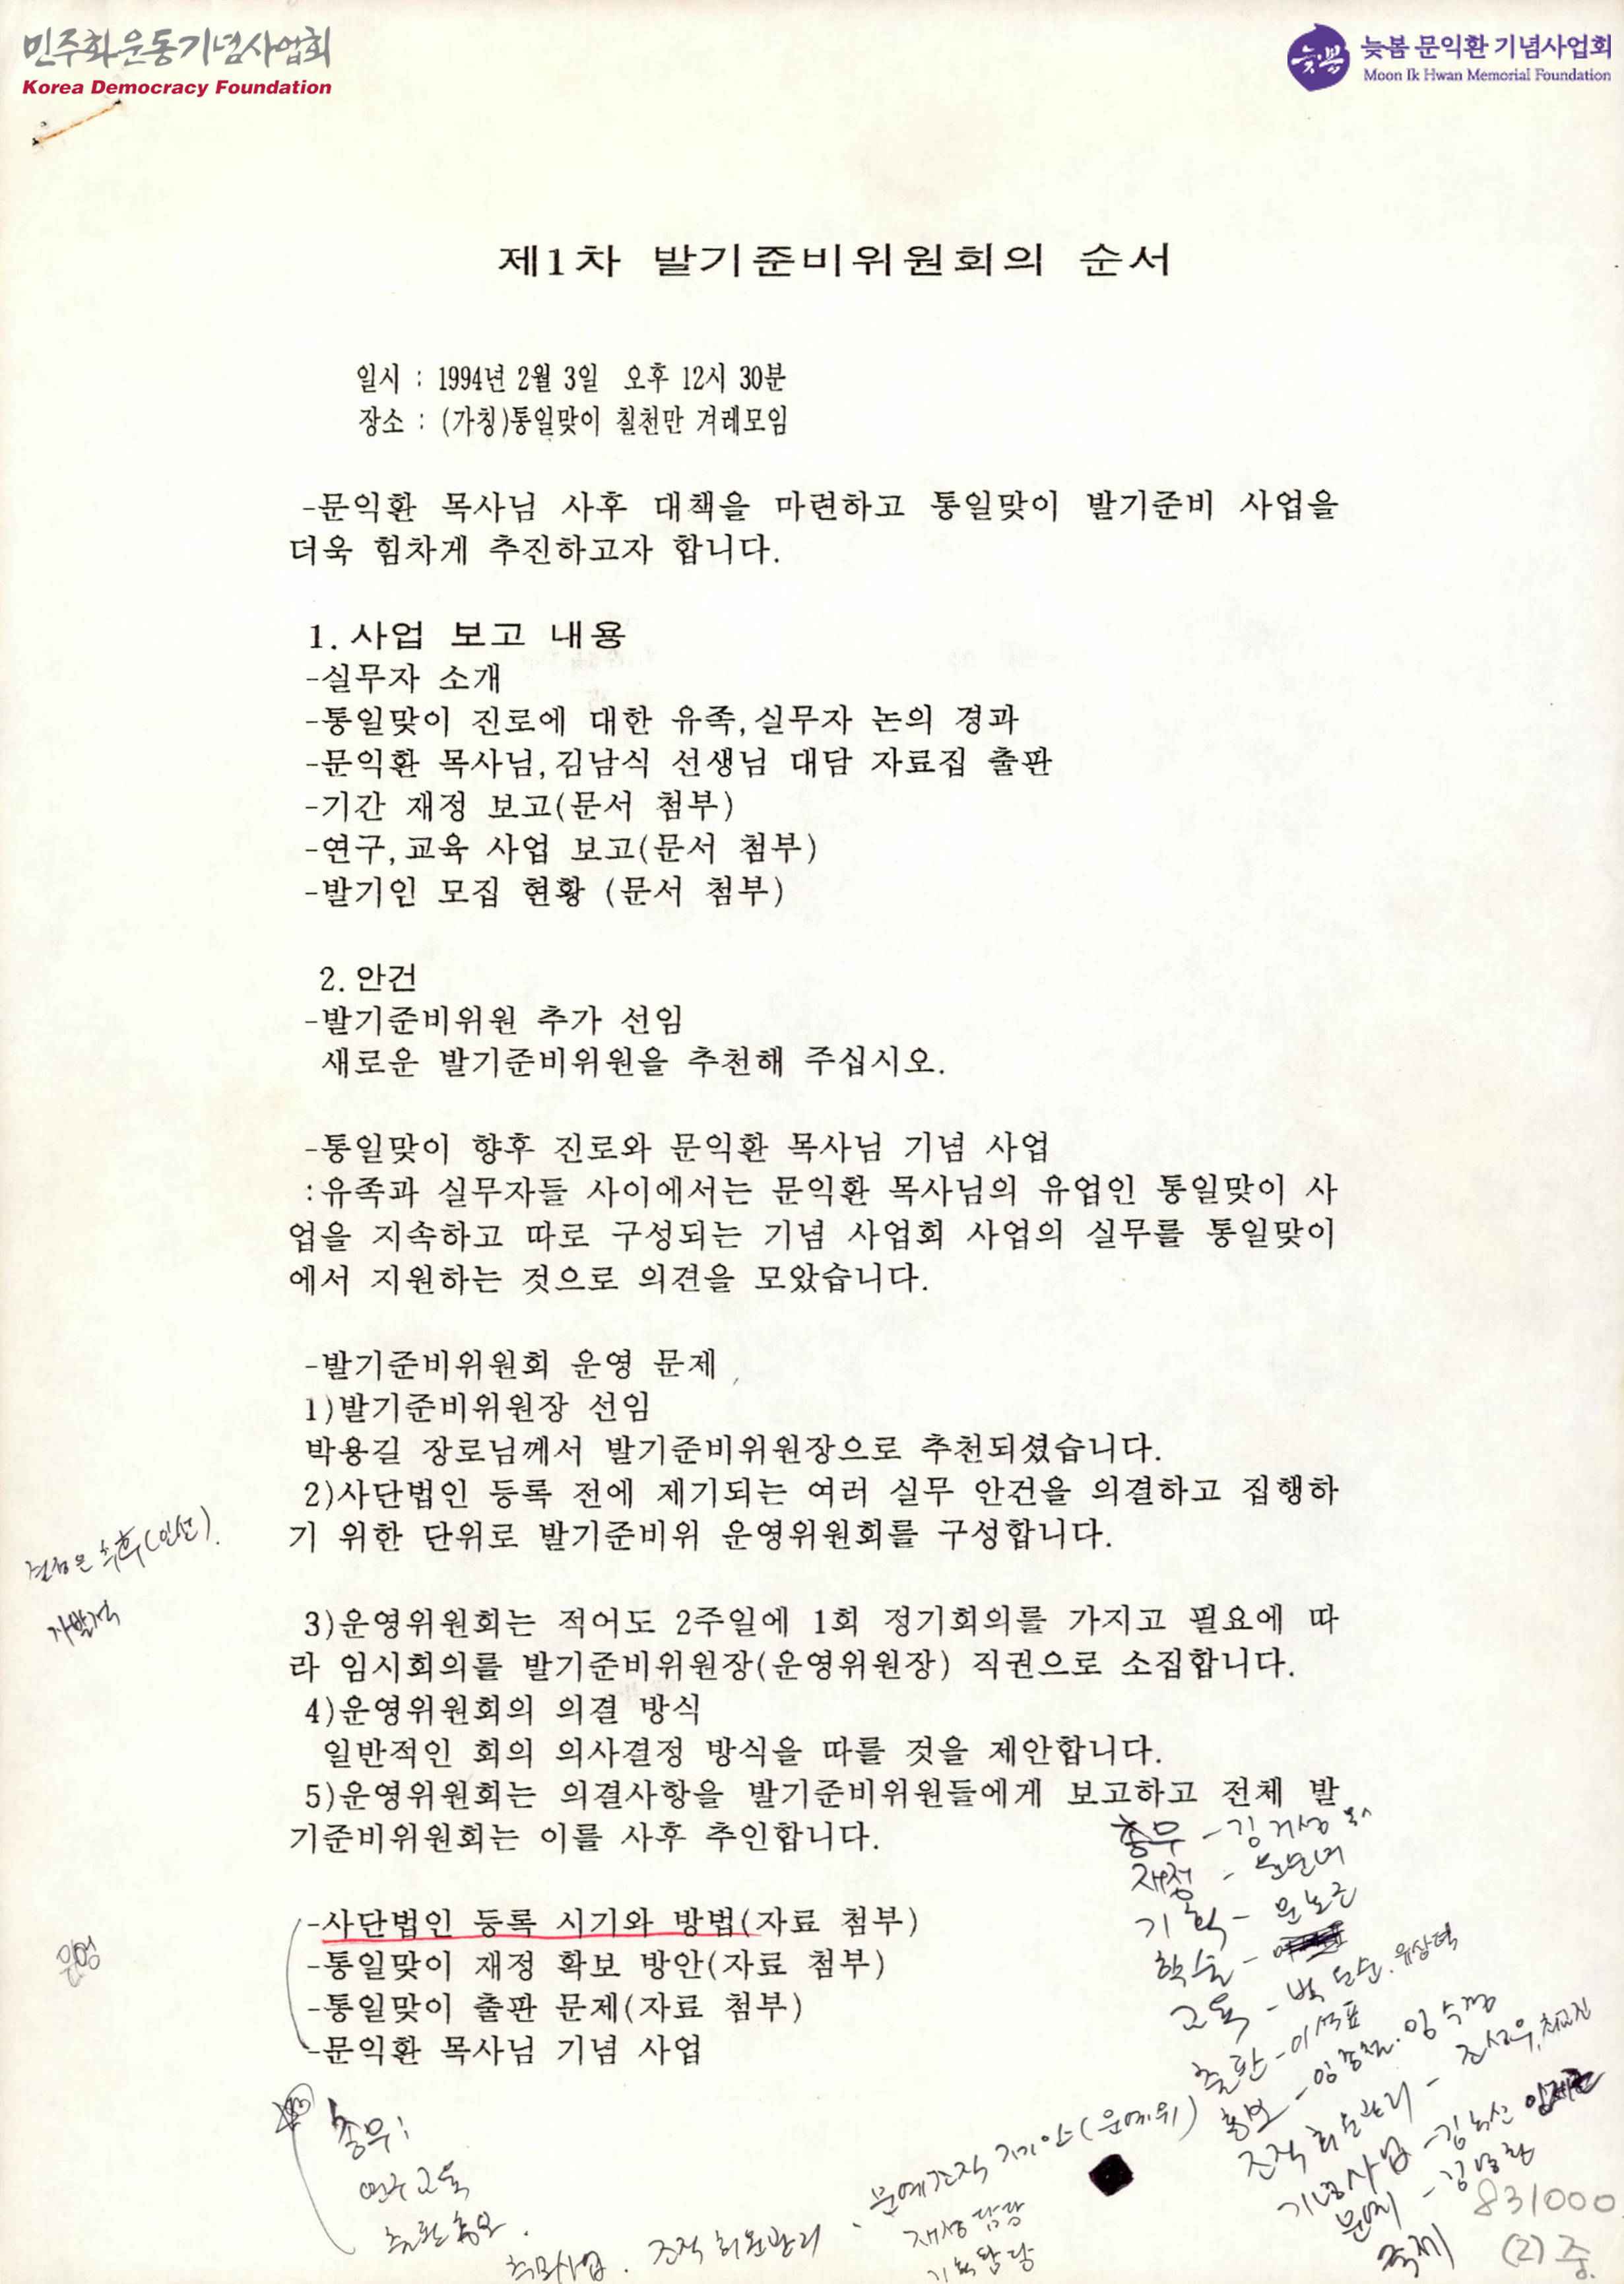 민주화운동기념사업회
Korea Democracy Foundation
늦봄
늦봄 문익환 기념사업회
Moon Ik Hwan Memorial Foundation
제1차 발기준비위원회의 순서
일시 : 1994년 2월 3일 오후 12시 30분
장소 : (가칭)통일맞이 칠천만 겨레모임
-문익환 목사님 사후 대책을 마련하고 통일맞이 발기준비 사업을
더욱 힘차게 추진하고자 합니다.
1. 사업 보고 내용
-실무자 소개
-통일맞이 진로에 대한 유족,실무자 논의 경과
-문익환 목사님,김남식 선생님 대담 자료집 출판
-기간 재정 보고(문서 첨부)
-연구,교육 사업 보고(문서 첨부)
-발기인 모집 현황 (문서 첨부)
2. 안건
-발기준비위원 추가 선임
새로운 발기준비위원을 추천해 주십시오.
-통일맞이 향후 진로와 문익환 목사님 기념 사업
:유족과 실무자들 사이에서는 문익환 목사님의 유업인 통일맞이 사
업을 지속하고 따로 구성되는 기념 사업회 사업의 실무를 통일맞이
에서 지원하는 것으로 의견을 모았습니다.
-발기준비위원회 운영 문제
1)발기준비위원장 선임
박용길 장로님께서 발기준비위원장으로 추천되셨습니다.
2)사단법인 등록 전에 제기되는 여러 실무 안건을 의결하고 집행하
기 위한 단위로 발기준비위 운영위원회를 구성합니다.
결정은 추후(인선).
자발적
3)운영위원회는 적어도 2주일에 1회 정기회의를 가지고 필요에 따
라 임시회의를 발기준비위원장(운영위원장) 직권으로 소집합니다.
4)운영위원회의 의결 방식
일반적인 회의 의사결정 방식을 따를 것을 제안합니다.
5)운영위원회는 의결사항을 발기준비위원들에게 보고하고 전체 발
기준비위원회는 이를 사후 추인합니다.
-사단법인 등록 시기와 방법(자료 첨부)
-통일맞이 재정 확보 방안(자료 첨부)
-통일맞이 출판 문제(자료 첨부)
-문익환 목사님 기념 사업
운영
총무 -
재정 -
기획 - 문노근
학술 -
교육 - 박순, 유상덕
출판 - 이석표
홍보 - 임수경
조직 회원관리 - 조성우, 최교진
기념사업 -
문예 -
축제
총무:
연구 교육
출판 홍보.
추모사업. 조직 회원관리
문예조직 (문예위)
재정 담당
기획 담당
831000
(2)중.